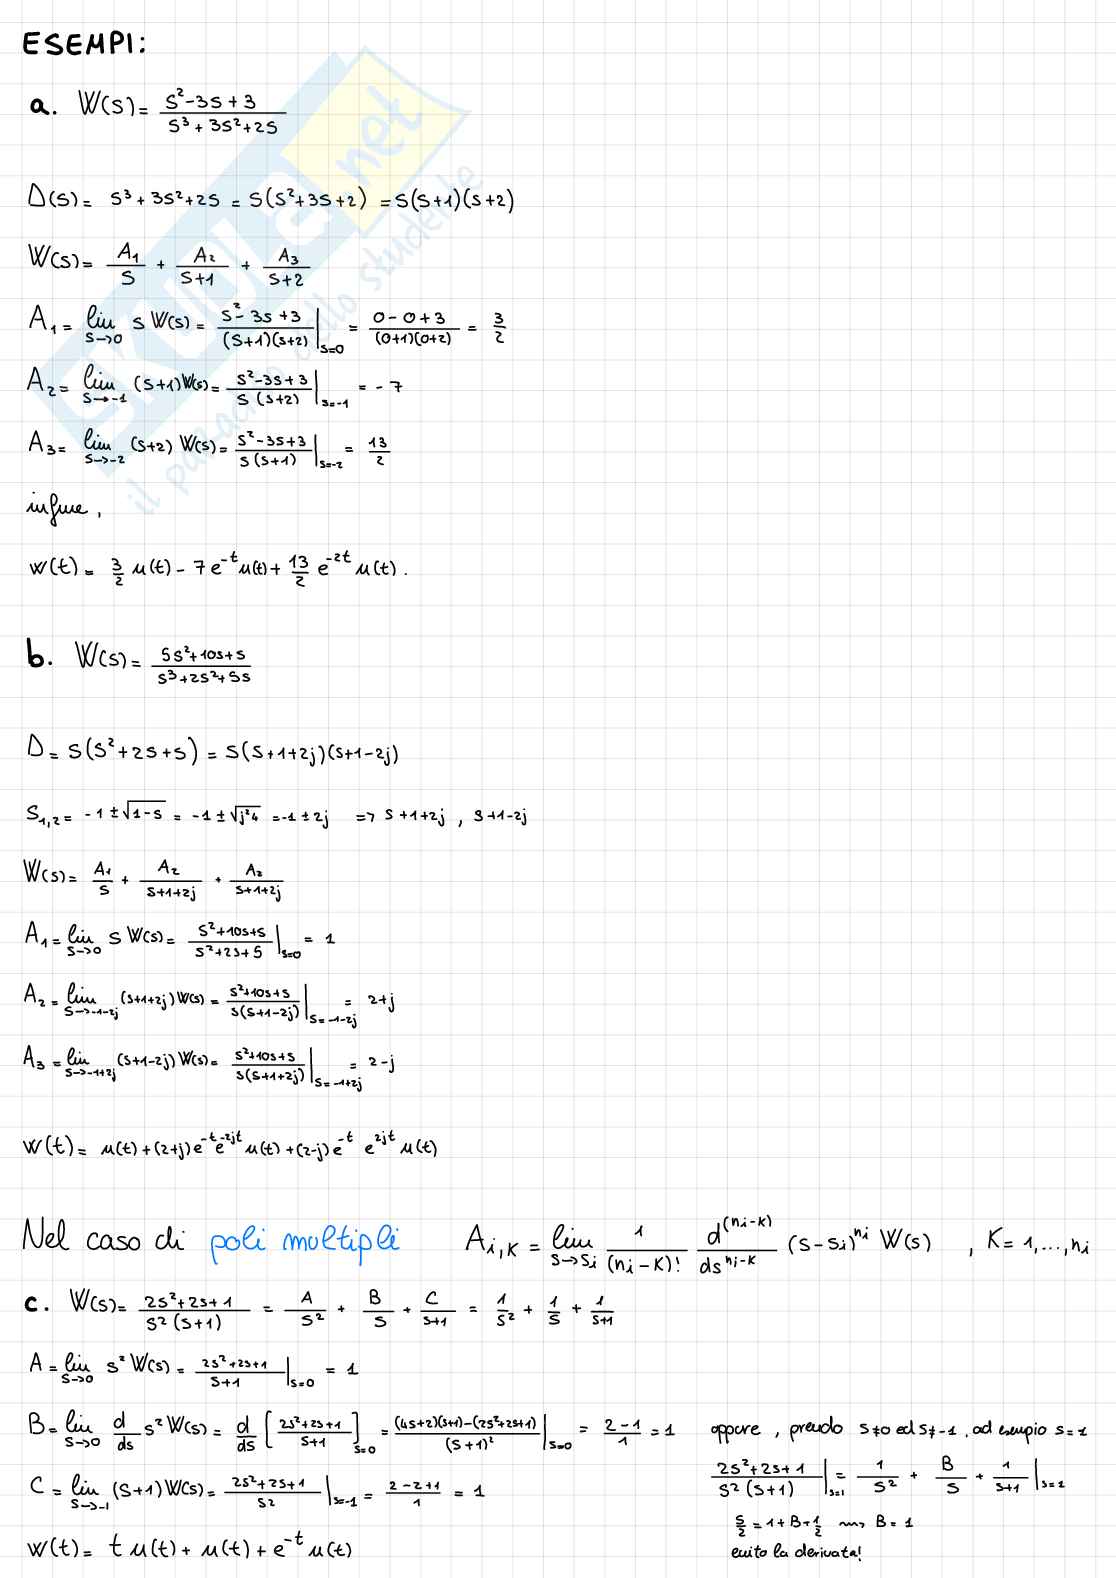 ESEMPI:
a. W(s) = (s²-3s+3)/(s³+3s²+2s)
D(s) = s³+3s²+2s = s(s²+3s+2) = s(s+1)(s+2)
W(s) = A₁/s + A₂/(s+1) + A₃/(s+2)
A₁ = lim s→0 s W(s) = (s²-3s+3)/((s+1)(s+2)) |s=0 = (0-0+3)/((0+1)(0+2)) = 3/2
A₂ = lim s→-1 (s+1)W(s) = (s²-3s+3)/(s(s+2)) |s=-1 = -7
A₃ = lim s→-2 (s+2) W(s) = (s²-3s+3)/(s(s+1)) |s=-2 = 13/2
infine,
w(t) = 3/2 u(t) - 7e^-t u(t) + 13/2 e^-2t u(t).
b. W(s) = (5s²+10s+5)/(s³+2s²+5s)
D = s(s²+2s+5) = s(s+1+2j)(s+1-2j)
s₁,₂ = -1 ± √(1-5) = -1 ± √(j²4) = -1 ± 2j => s+1+2j, s+1-2j
W(s) = A₁/s + A₂/(s+1+2j) + A₃/(s+1+2j)
A₁ = lim s→0 s W(s) = (s²+10s+5)/(s²+2s+5) |s=0 = 1
A₂ = lim s→-1-2j (s+1+2j)W(s) = (s²+10s+5)/(s(s+1-2j)) |s=-1-2j = 2+j
A₃ = lim s→-1+2j (s+1-2j)W(s) = (s²+10s+5)/(s(s+1+2j)) |s=-1+2j = 2-j
w(t) = u(t)+(2+j)e^-t e^-2jt u(t)+(2-j)e^-t e^2jt u(t)
Nel caso di poli multipli A i,K = lim s→si 1/(ni-K)! d^(ni-K)/ds^ni-K (s-si)^ni W(s), K=1,...,ni
c. W(s) = (2s²+2s+1)/(s²(s+1)) = A/s² + B/s + C/(s+1) = 1/s² + 1/s + 1/(s+1)
A = lim s→0 s² W(s) = (2s²+2s+1)/(s+1) |s=0 = 1
B = lim s→0 d/ds s² W(s) = d/ds [(2s²+2s+1)/(s+1)] s=0 = ((4s+2)(s+1)-(2s²+2s+1))/(s+1)² |s=0 = (2-1)/1 = 1
C = lim s→-1 (s+1)W(s) = (2s²+2s+1)/s² |s=-1 = (2-2+1)/1 = 1
w(t) = t u(t) + u(t) + e^-t u(t)
oppure, prendo s≠0 ed s≠-1, ad esempio s=1
(2s²+2s+1)/(s²(s+1)) |s=1 = 1/s² + B/s + 1/(s+1) |s=1
5/2 = 1+B+1/2 ⇝ B=1
evito la derivata!
SKUOLA.net
il paradiso dello studente